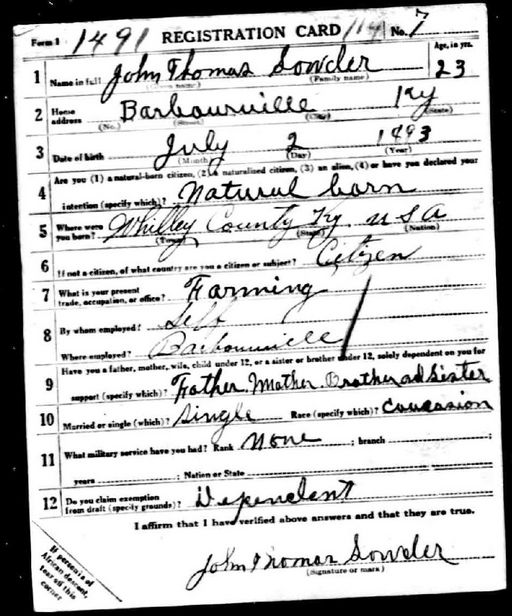 Form 1 1491 REGISTRATION CARD 114 No. 7
Age, in yrs.
1 Name in full John Thomas Sowder 23
(Family name)
2 Home address Barbourville Ky
(No.) (Street) (City) (State)
3 Date of birth July 2 1893
(Month) (Day) (Year)
4 Are you (1) a natural-born citizen, (2) a naturalized citizen, (3) an alien, (4) or have you declared your
intention (specify which)? Natural born
5 Where were you born? Whitley County Ky USA
(Town) (State) (Nation)
6 If not a citizen, of what country are you a citizen or subject? Citizen
7 What is your present trade, occupation, or office? Farming
8 By whom employed? Self
Where employed? Barbourville
9 Have you a father, mother, wife, child under 12, or a sister or brother under 12, solely dependent on you for
support (specify which)? Father, Mother, Brother ad Sister
10 Married or single (which)? Single Race (specify which)? Caucasion
11 What military service have you had? Rank None ; branch ;
years ; Nation or State
12 Do you claim exemption from draft (specify grounds)? Dependent
I affirm that I have verified above answers and that they are true.
John Thomas Sowder
(Signature or mark)
If person is of
African descent,
tear off this
corner